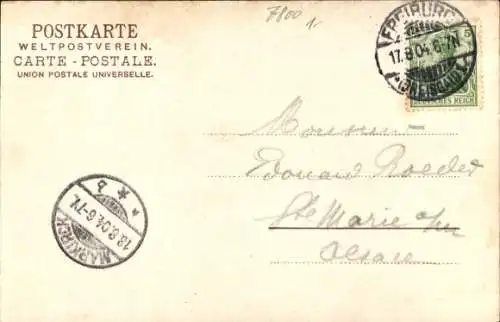 POSTKARTE
WELTPOSTVEREIN.
CARTE - POSTALE.
UNION POSTALE UNIVERSELLE.
7800
1.-
FREIBURG
17.8.04.6-7N.
(BREISGAU)
5
DEUTSCHES REICH
Monsieur
Edouard Roeder
Ste Marie a/m
Alsace
MARKIRCH
18.8.04.6-7V.
* b *